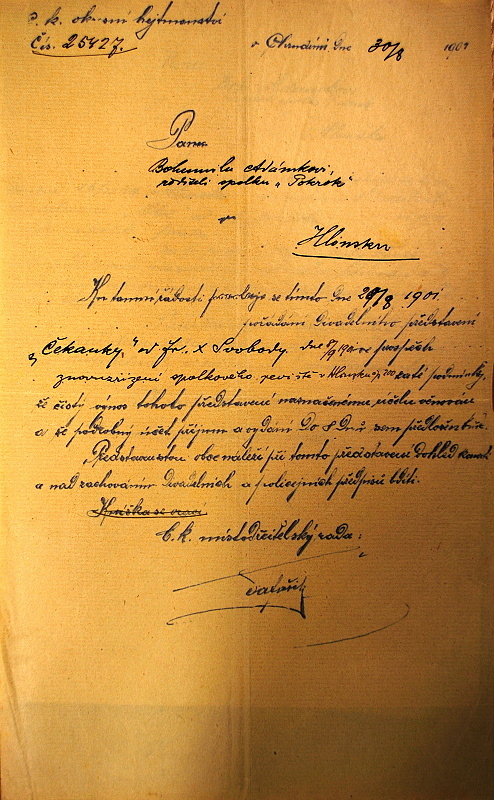 c. k. okresní hejtmanství
Čís. 25427.
v Chrudimi dne 30/8 1901
Panu
Bohumilu Adámkovi,
řediteli spolku „Pokrok“
v
Hlinsku
K tamní žádosti povoluje se tímto dne 29/8 1901
pořádání divadelního představení
„Čekanky“ od Fr. X Svobody. dne
spolkového v Hlinsku za podmínky,
že čistý výnos tohoto představení naznačenému účelu věnován
a že podrobný účet příjmů a vydání do 8 dnů sem předložen bude.
Představenstvu obce náleží při tomto představení dohled konati
a nad zachováním divadelních a policejních předpisů bdíti.
Knížka se vrací
C. k. místodržitelský rada: